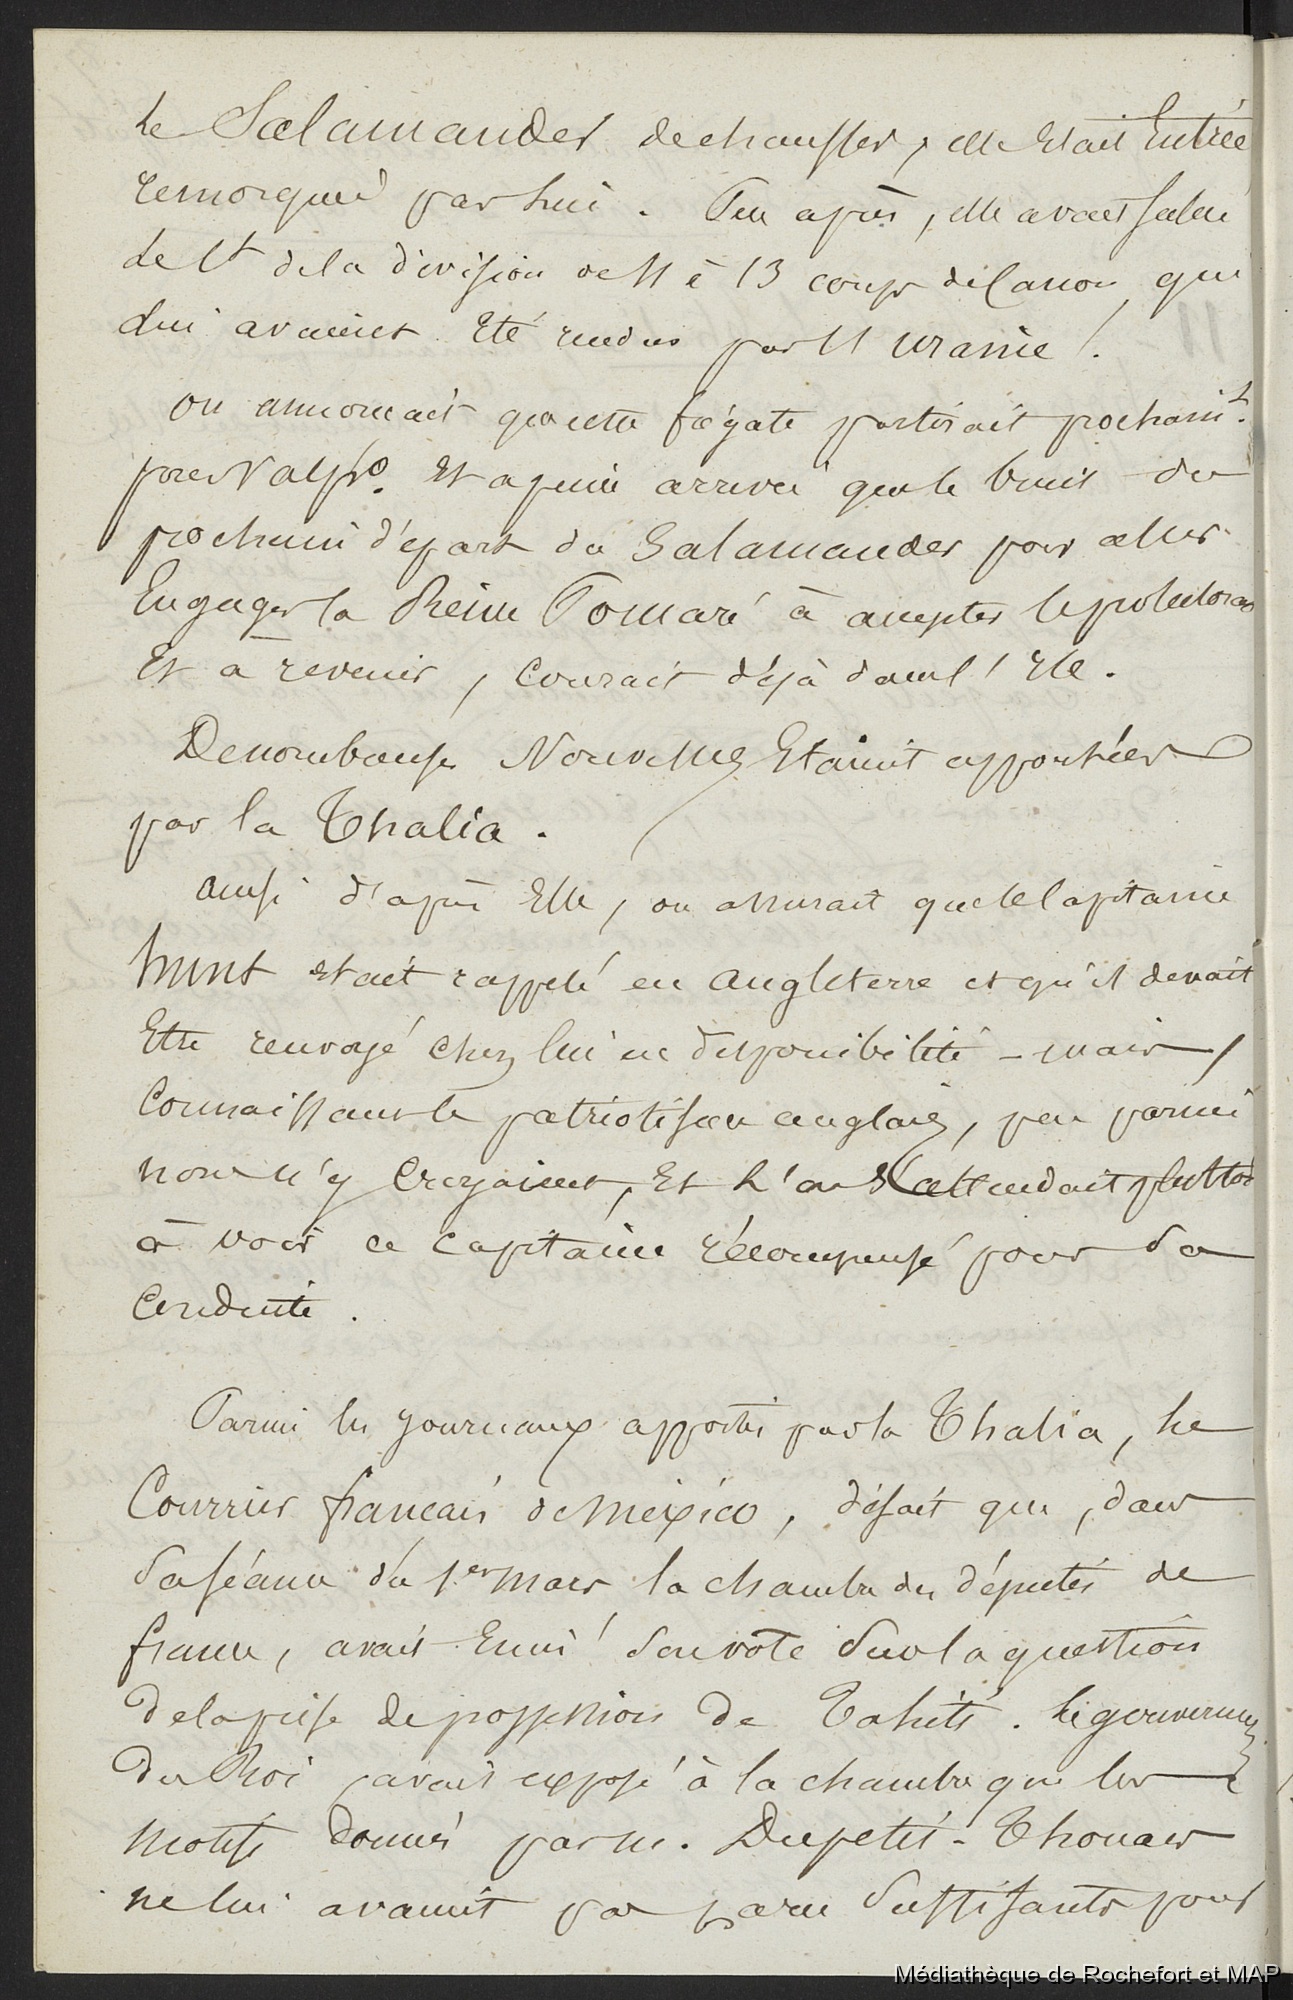 le Salamander de chauffer, elle était Entrée
remorquée par lui. Peu après, elle avait salué
le Ct de la division de 11 à 13 coups de canon, qui
lui avaient été rendus par l'uranie.
on annonçait que cette frégate partirait prochaint
pour Valpso. Et a peine arrivée que le bruit du
prochain départ du Salamander pour aller
Engager la Reine Pomaré à accepter le protectorat
Et à revenir, courait déjà dans l'Ile.
De nombreuses Nouvelles Etaient apportées
par la Thalia.
ainsi d'après Elle, on assurait que le Capitaine
hunt etait rappelé en angleterre et qu'il devait
Etre renvoyé chez lui en disponibilité - mais,
Connaissant le patriotisme anglais, peu parmi
nous n'y Croyaient, Et l'on s'attendait plutôt
à voir ce Capitaine récompensé pour sa
Conduite.
Parmi les journaux apportés par la Thalia, le
Courrier français de Mexico, disait que, dans
sa séance du 1er Mars la chambre des députés de
france, avait Emis son vote sur la question
de la prise de possession de Tahiti. Le gouvernemt
du Roi, avait exposé à la chambre que les
motifs donnés par m. Dupetit-Thouars
ne lui avaient pas paru suffisants pour
Médiathèque de Rochefort et MAP